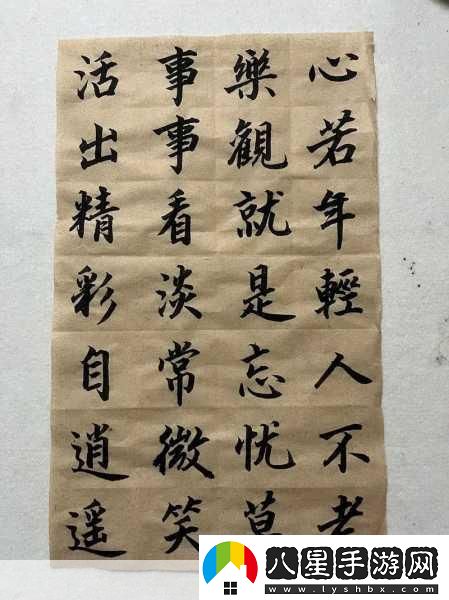 心若年輕人不老
樂觀就是忘忧草
事事看淡常微笑
活出精彩自逍遥
八星手游网
www.lyshbx.com